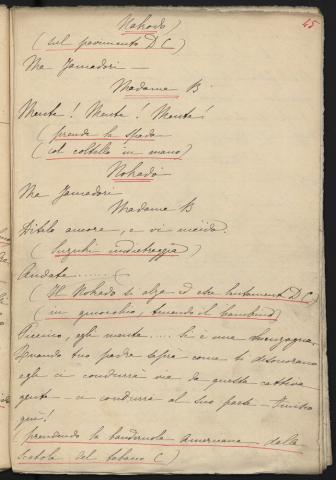 Nakodo
45
(sul pavimento D C)
Ma Jamadori —
Madama B
Mente! Mente! Mente!
(prende la spada
(col coltello in mano)
Nakodo
Ma Jamadori
Madama B
Ditelo ancora, e vi uccido.
(Suzuki indietreggia)
Andate......
(Il Nakodo si alza ed esce lentamente D C)
(in ginocchio, tenendo il bambino)
Piccino, egli mente.... Si è una menzogna.
Quando tuo padre saprà come ti disonorano
egli ci condurrà via da questa cattiva
gente — ci condurrà al suo paese —
qui!
(prendendo la banderuola americana dalla
scatola del tabacco C)